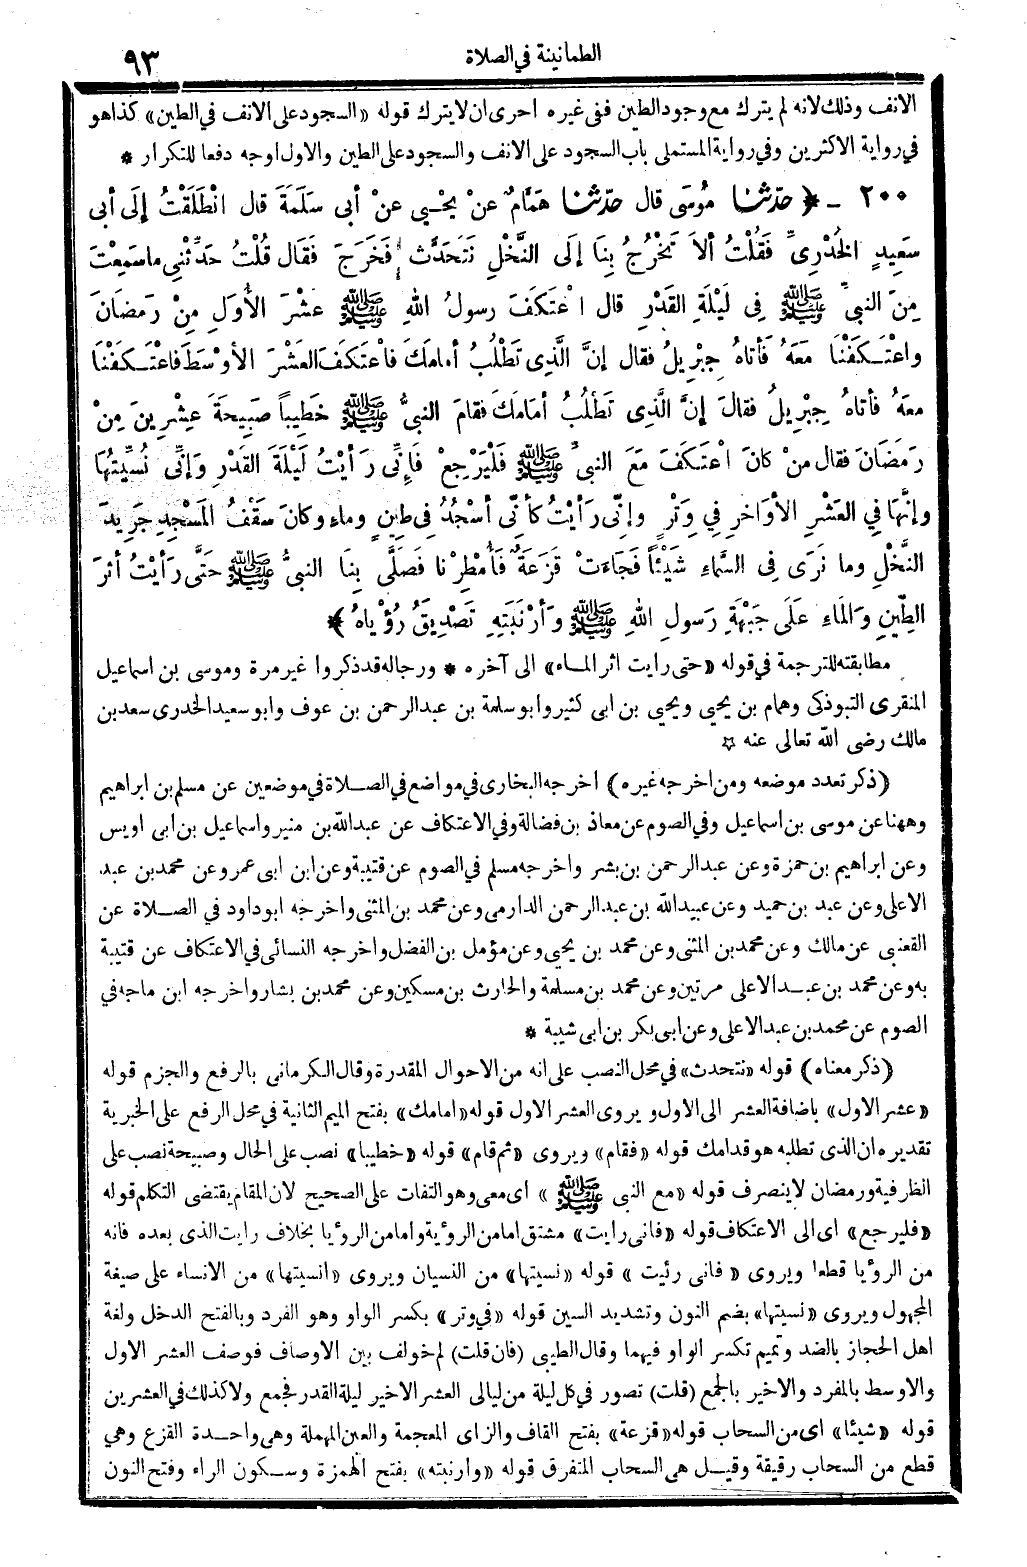 الطمانينة في الصلاة
٩٣
الانف وذلك لانه لم يترك مع وجود الطين ففي غيره احرى ان لا يترك قوله «السجود على الانف في الطين» كذا هو
في رواية الاكثرين وفي رواية المستملى باب السجود على الانف والسجود على الطين والاول اوجه دفعا للتكرار *
٢٠٠ - ﴿ حدّثنا مُوسَى قال حدّثنا هَمَّامٌ عنْ يَحْيى عنْ أبى سَلَمَةَ قال انْطَلَقْتُ إلَى أبى
سَعِيدٍ الخُدْرِىِّ فَقُلْتُ ألاَ تَخْرُجُ بِنَا إلَى النَّخْلِ نَتَحَدَّث فَخَرَجَ فَقَال قُلْتُ حَدِّثْنِى ماسَمِعْتَ
مِنَ النبىِّ ﷺ فِى لَيْلَةِ القَدْرِ قال اعْتَكَفَ رسولُ اللهِ ﷺ عَشْرَ الأُوَلِ مِنْ رَمَضَانَ
واعْتَكَفْنَا مَعَهُ فَأتاهُ جِبْرِيلُ فقال إنَّ الَّذِى تَطْلُبُ أمامَكَ فاعْتَكَفَ العَشْرَ الأوْسَطَ فاعْتَكَفْنَا
معَهُ فأتاهُ جِبْرِيلُ فقالَ إنَّ الَّذِى تَطْلُبُ أمَامَكَ فقامَ النبىُّ ﷺ خَطِيباً صَبِيحَةَ عِشْرِينَ مِنْ
رَمَضَانَ فقال منْ كانَ اعْتَكَفَ مَعَ النبىِّ ﷺ فَلْيَرْجِعْ فَإِنِّى رَأيْتُ لَيْلَةَ القَدْرِ وَإنِّى نُسِّيتُهَا
وإنَّهَا فِي العَشْرِ الأوَاخرِ فِي وَتْرٍ وإنِّى رَأيْتُ كأنِّى أسْجُدُ فِى طِينٍ وماءٍ وكانَ سَقْفُ المَسْجِدِ جَرِيدَ
النَّخْلِ وما نَرَى فِى السَّماءِ شَيْئاً فَجَاءَتْ قَزَعَةٌ فَأُمْطِرْنا فَصَلَّى بِنَا النبىُّ ﷺ حَتَّى رَأيْتُ أثَرَ
الطِّينِ وَالمَاءِ عَلَى جَبْهَةِ رَسولِ اللهِ ﷺ وَأرْنَبَتِهِ تَصْدِيقَ رُؤْياهُ ﴾ *
مطابقته للترجمة في قوله «حتى رايت اثر الماء» الى آخره * ورجاله قد ذكروا غير مرة وموسى بن اسماعيل
المنقرى التبوذكى وهمام بن يحيى ويحيى بن ابى كثير وابو سلمة بن عبد الرحمن بن عوف وابو سعيد الخدرى سعد بن
مالك رضى الله تعالى عنه ☆
(ذكر تعدد موضعه ومن اخرجه غيره) اخرجه البخارى في مواضع في الصلاة في موضعين عن مسلم بن ابراهيم
وههنا عن موسى بن اسماعيل وفي الصوم عن معاذ بن فضالة وفي الاعتكاف عن عبد الله بن منير واسماعيل بن ابى اويس
وعن ابراهيم بن حمزة وعن عبد الرحمن بن بشر واخرجه مسلم في الصوم عن قتيبة وعن ابن ابى عمر وعن محمد بن عبد
الاعلى وعن عبد بن حميد وعن عبيد الله بن عبد الرحمن الدارمى وعن محمد بن المثنى واخرجه ابو داود في الصلاة عن
القعنبى عن مالك وعن محمد بن المثنى وعن محمد بن يحيى وعن مؤمل بن الفضل واخرجه النسائى في الاعتكاف عن قتيبة
به وعن محمد بن عبد الاعلى مرتين وعن محمد بن مسلمة والحارث بن مسكين وعن محمد بن بشار واخرجه ابن ماجه في
الصوم عن محمد بن عبد الاعلى وعن ابى بكر بن ابى شيبة *
(ذكر معناه) قوله «نتحدث» في محل النصب على انه من الاحوال المقدرة وقال الكرمانى بالرفع والجزم قوله
«عشر الاول» باضافة العشر الى الاول ويروى العشر الاول قوله «امامك» بفتح الميم الثانية في محل الرفع على الخبرية
تقديره ان الذى تطلبه هو قدامك قوله «فقام» ويروى «ثم قام» قوله «خطيبا» نصب على الحال وصبيحة نصب على
الظرفية ورمضان لا ينصرف قوله «مع النبى ﷺ» اى معى وهو التفات على الصحيح لان المقام يقتضى التكلم قوله
«فليرجع» اى الى الاعتكاف قوله «فانى رايت» مشتق اما من الرؤية واما من الرؤيا بخلاف رايت الذى بعده فانه
من الرؤيا قطعا ويروى «فانى رئيت» قوله «نسيتها» من النسيان ويروى «انسيتها» من الانساء على صيغة
المجهول ويروى «نسيتها» بضم النون وتشديد السين قوله «في وتر» بكسر الواو وهو الفرد وبالفتح الدخل ولغة
اهل الحجاز بالضد وتميم تكسر الواو فيهما وقال الطيبى (فان قلت) لم خولف بين الاوصاف فوصف العشر الاول
والاوسط بالمفرد والاخير بالجمع (قلت) تصور في كل ليلة من ليالى العشر الاخير ليلة القدر فجمع ولا كذلك في العشرين
قوله «شيئا» اى من السحاب قوله «قزعة» بفتح القاف والزاى المعجمة والعين المهملة وهى واحدة القزع وهي
قطع من السحاب رقيقة وقيل هى السحاب المتفرق قوله «وارنبته» بفتح الهمزة وسكون الراء وفتح النون